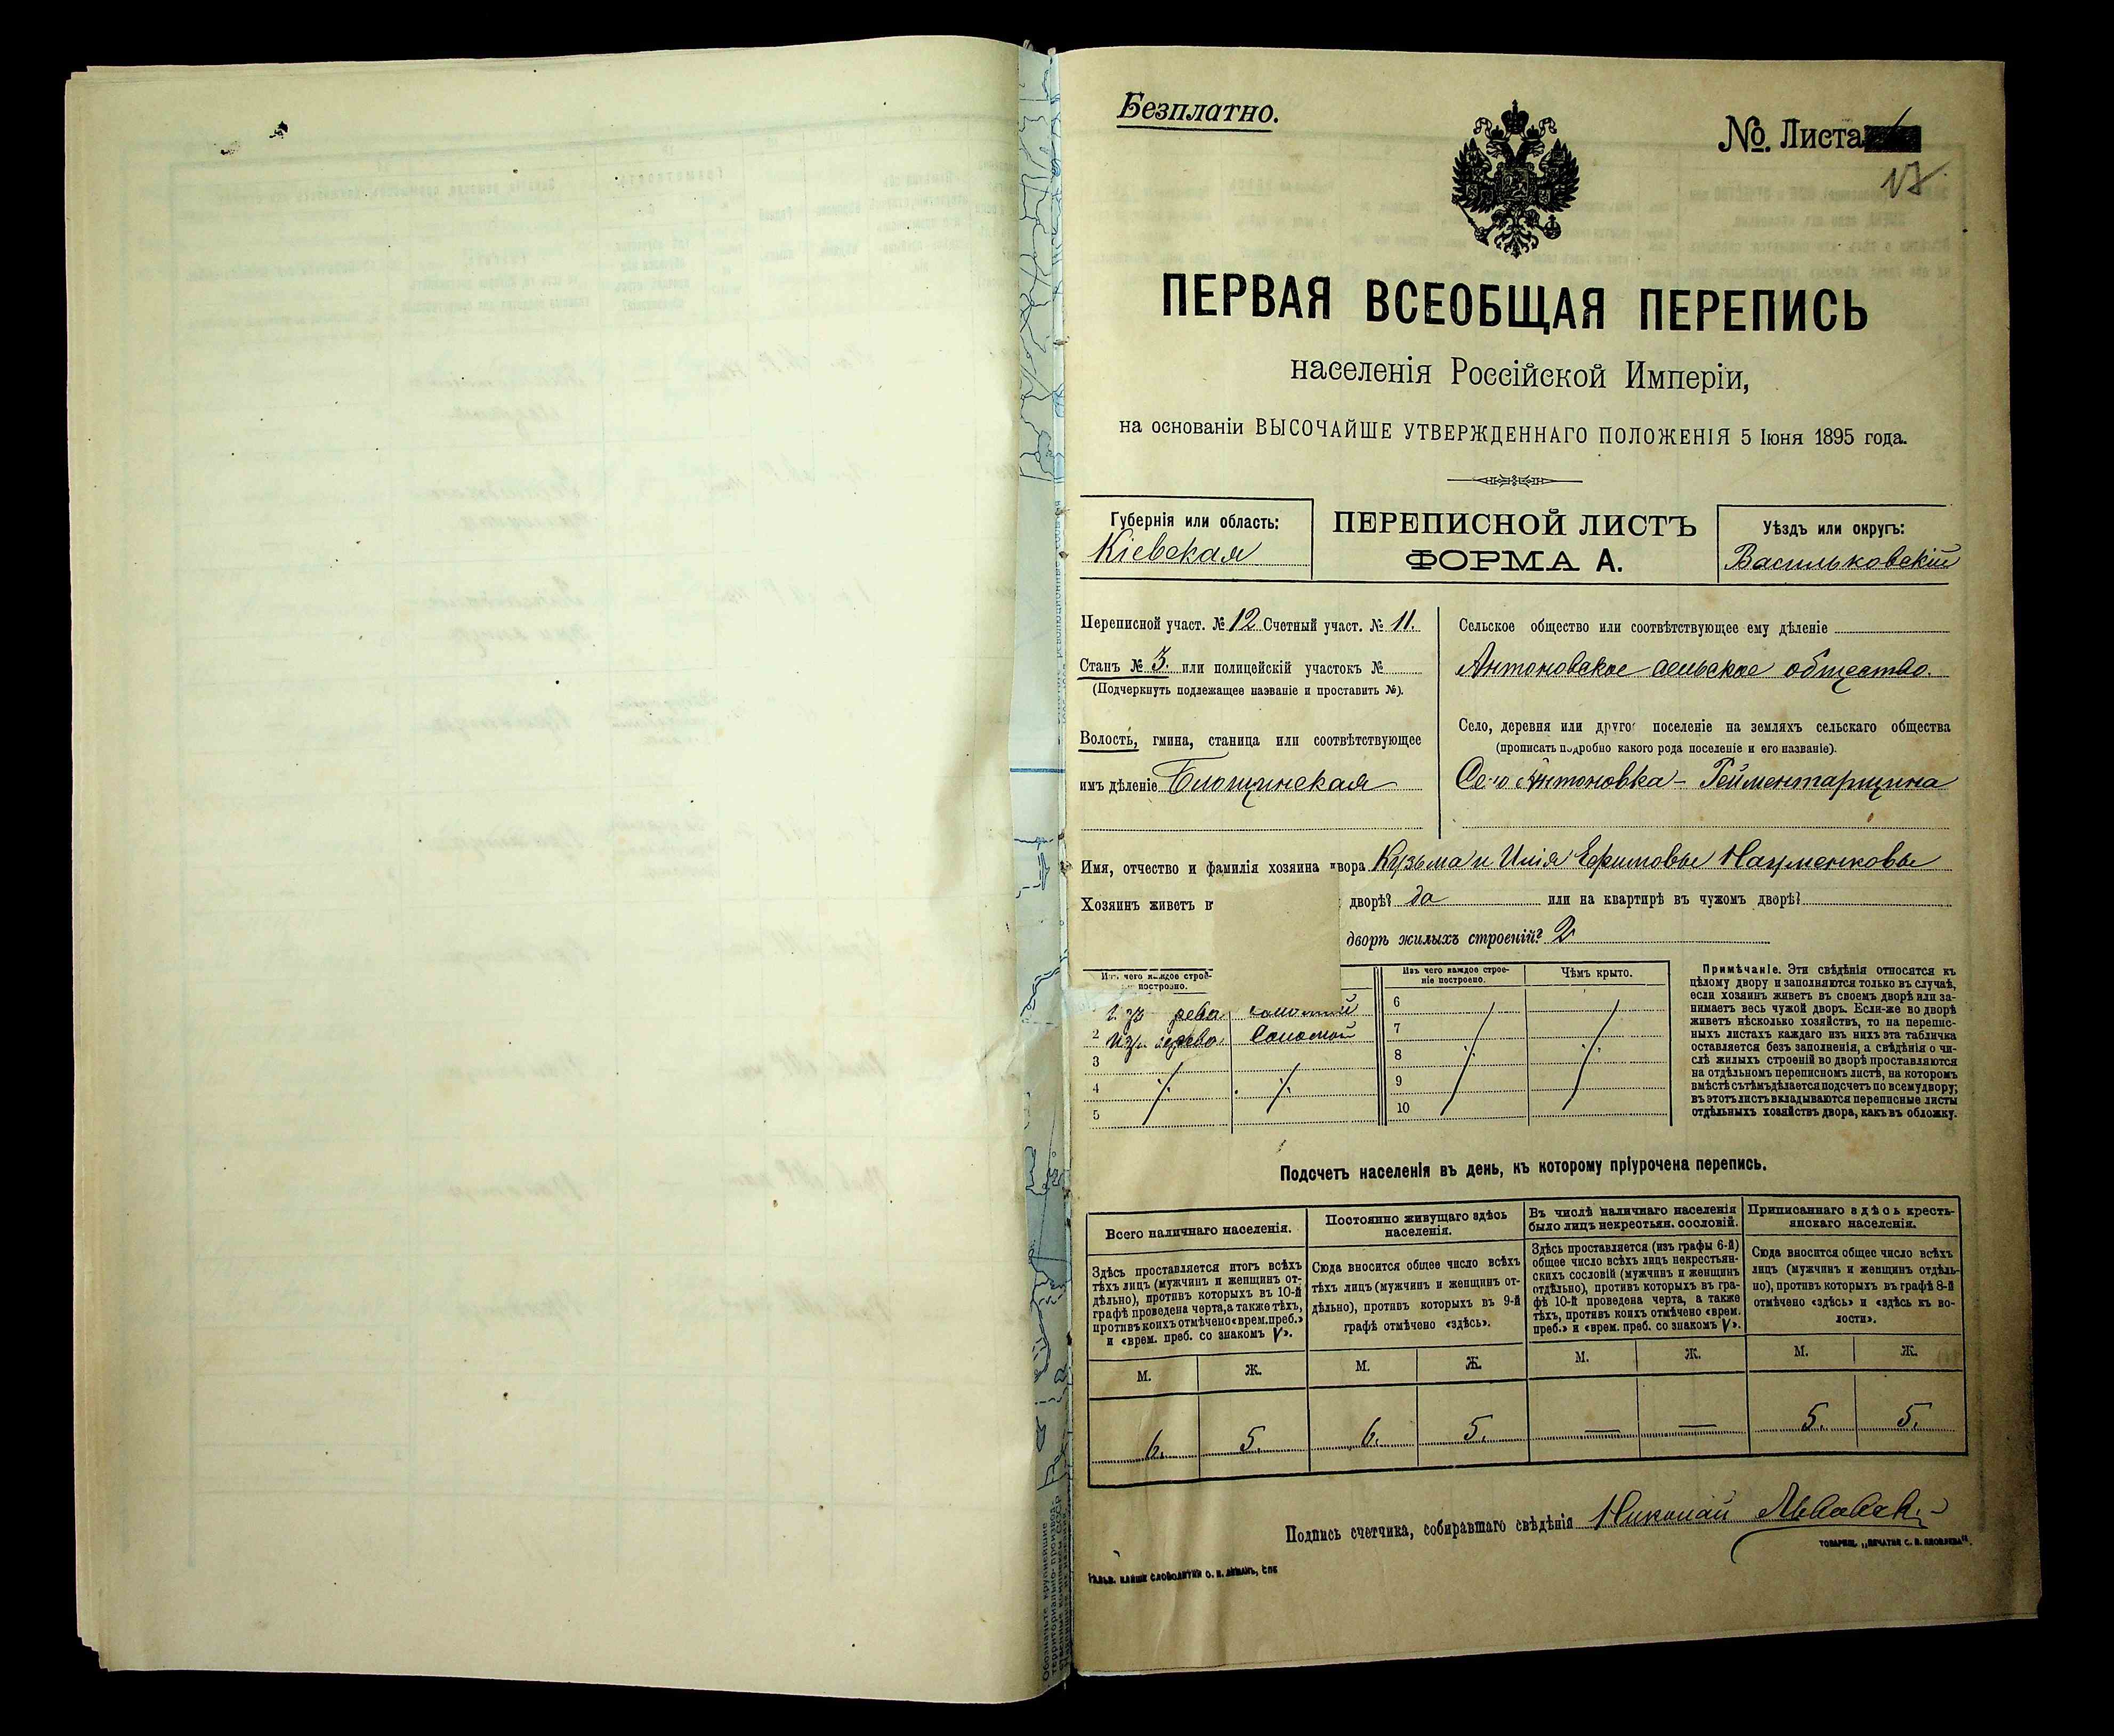 Безплатно.
№. Листа
17
ПЕРВАЯ ВСЕОБЩАЯ ПЕРЕПИСЬ
населенія Россійской Имперіи,
на основаніи ВЫСОЧАЙШЕ УТВЕРЖДЕННАГО ПОЛОЖЕНІЯ 5 Іюня 1895 года.
Губернія или область:
Кіевская
ПЕРЕПИСНОЙ ЛИСТЪ
ФОРМА А.
Уѣздъ или округъ:
Васильковскій
Переписной участ. № 12 Счетный участ. № 11.
Станъ № 3. или полицейскій участокъ №
(Подчеркнуть подлежащее названіе и проставить №).
Волость, гмина, станица или соотвѣтствующее
имъ дѣленіе Блощинская
Сельское общество или соотвѣтствующее ему дѣленіе
Антоновское сельское общество.
Село, деревня или друго поселеніе на земляхъ сельскаго общества
(прописать подробно какого рода поселеніе и его названіе).
Село Антоновка - Рейментарщина
Имя, отчество и фамилія хозяина двора Кузьма и Илія Ефимовы Науменковы
Хозяинъ живетъ в дворѣ? да или на квартирѣ въ чужомъ дворѣ?
дворѣ жилыхъ строеній? 2
Изъ чего каждое строе-
построено.
Изъ чего каждое строе-
ніе построено.
Чѣмъ крыто.
соломой
2 Изъ дерева Соломой
3
4
5
6
7
8
9
10
Примѣчаніе. Эти свѣдѣнія относятся къ
цѣлому двору и заполняются только въ случаѣ,
если хозяинъ живетъ въ своемъ дворѣ или за-
нимаетъ весь чужой дворъ. Если-же во дворѣ
живетъ нѣсколько хозяйствъ, то на перепис-
ныхъ листахъ каждаго изъ нихъ эта табличка
оставляется безъ заполненія, а свѣдѣнія о чи-
слѣ жилыхъ строеній во дворѣ проставляются
на отдѣльномъ переписномъ листѣ, на которомъ
вмѣстѣ съ тѣмъ дѣлается подсчетъ по всему двору;
въ этотъ листъ вкладываются переписные листы
отдѣльныхъ хозяйствъ двора, какъ въ обложку.
Подсчетъ населенія въ день, къ которому пріурочена перепись.
Всего наличнаго населенія.
Здѣсь проставляется итогъ всѣхъ
тѣхъ лицъ (мужчинъ и женщинъ от-
дѣльно), противъ которыхъ въ 10-й
графѣ проведена черта, а также тѣхъ,
противъ коихъ отмѣчено «врем. преб.»
и «врем. преб. со знакомъ V».
Постоянно живущаго здѣсь
населенія.
Сюда вносится общее число всѣхъ
тѣхъ лицъ (мужчинъ и женщинъ от-
дѣльно), противъ которыхъ въ 9-й
графѣ отмѣчено «здѣсь».
Въ числѣ наличнаго населенія
было лицъ некрестьян. сословій.
Здѣсь проставляется (изъ графы 6-й)
общее число всѣхъ лицъ некрестьян-
скихъ сословій (мужчинъ и женщинъ
отдѣльно), противъ которыхъ въ гра-
фѣ 10-й проведена черта, а также
тѣхъ, противъ коихъ отмѣчено «врем.
преб.» и «врем. преб. со знакомъ V».
Приписаннаго здѣсь кресть-
янскаго населенія.
Сюда вносится общее число всѣхъ
лицъ (мужчинъ и женщинъ отдѣль-
но), противъ которыхъ въ графѣ 8-й
отмѣчено «здѣсь» и «здѣсь къ во-
лости».
М. Ж. М. Ж. М. Ж. М. Ж.
6. 5. 6. 5. — — 5. 5.
Подпись счетчика, собиравшаго свѣдѣнія Николай
ТОВАРИЩ. „ПЕЧАТНЯ С. П. ЯКОВЛЕВА".
Обозначьте крупнейшие
территориально-производ-
ственные комплексы СССР